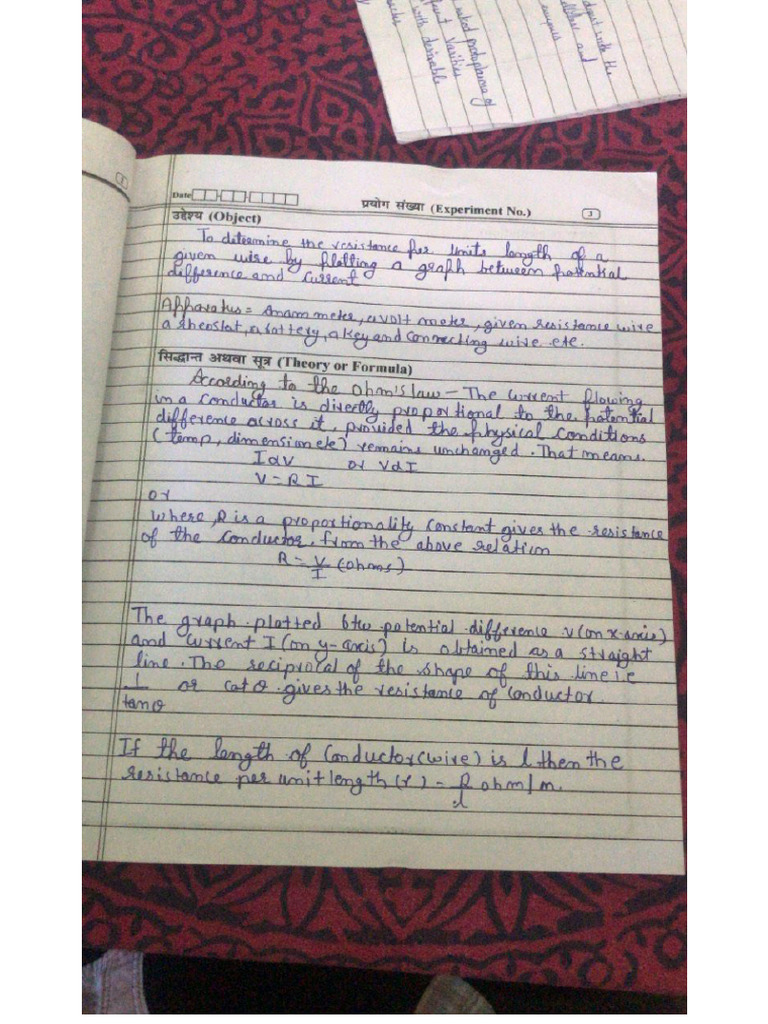 dant with the
unked protoplasma of
Varities
with desirable
and
1
Date
प्रयोग संख्या (Experiment No.)
3
उद्देश्य (Object)
To determine the resistance fur Units length of a
given wire by plotting a graph between potential
difference and Current
Apparatus = An ammeter, a volt meter, given resistance wire
a rheostat, a battery, a key and Connecting wire etc.
सिद्धान्त अथवा सूत्र (Theory or Formula)
According to the ohm's law - The current flowing
in a conductor is directly proportional to the potential
difference across it, provided the physical Conditions
(temp, dimension etc) remains unchanged. That means.
I α V or V α I
V = R I
or
where, R is a proportionality Constant gives the resistance
of the conductor, from the above relation
R = V/I (ohms)
The graph plotted btw potential difference v (on x-axis)
and current I (on y-axis) is obtained as a straight
line. The reciprocal of the shape of this line i.e
1/tanθ or cotθ gives the resistance of Conductor.
If the length of Conductor (wire) is l then the
resistance per unit length (r) = R/l ohm/m.